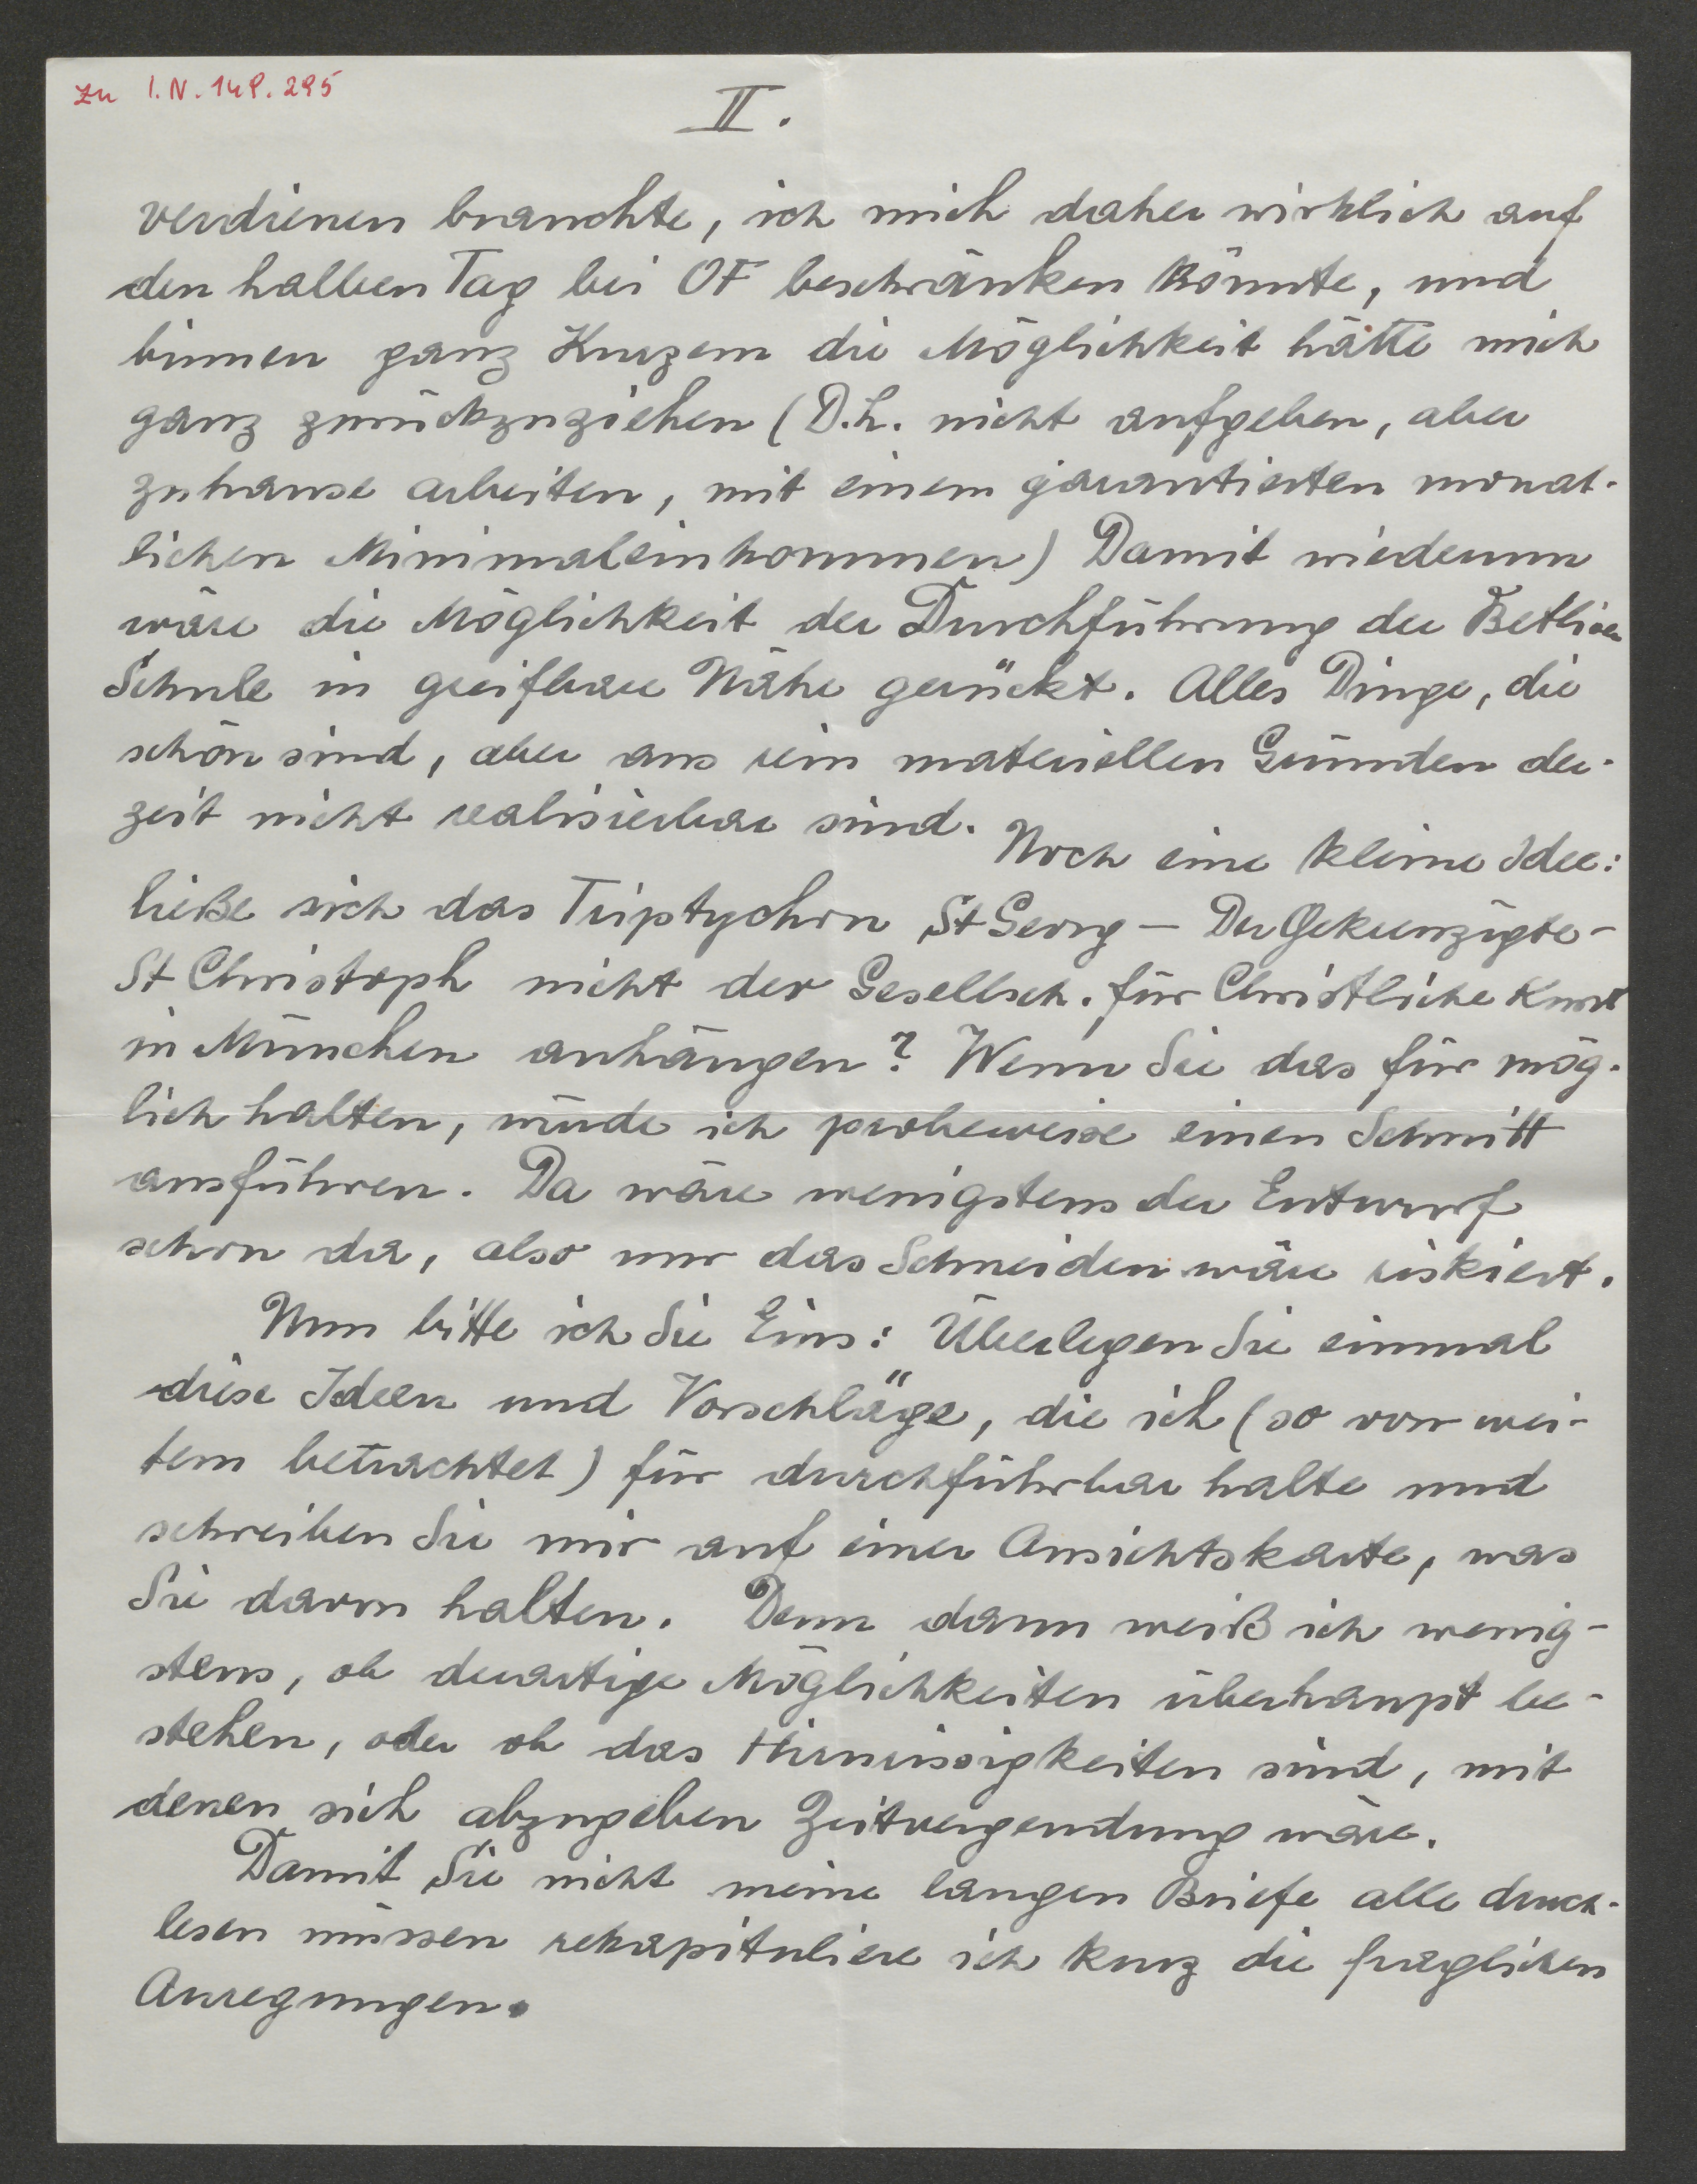 zu I.N. 148.295
II.
verdienen brauchte, ich mich daher wirklich auf
den halben Tag bei OF beschränken könnte, und
binnen ganz Kurzem die Möglichkeit hätte mich
ganz zurückzuziehen (D.h. nicht aufgeben, aber
zuhause arbeiten, mit einem garantierten monat-
lichen Minimaleinkommen) Damit wiederum
wäre die Möglichkeit der Durchführung der
Schule in greifbare Nähe gerückt. Alles Dinge, die
schön sind, aber aus rein materiellen Gründen der-
zeit nicht realisierbar sind. Noch eine kleine Idee:
ließe sich das Triptychon St Georg – Der Gekreuzigte –
St Christoph nicht der Gesellsch. für Christliche Kunst
in München anhängen? Wenn Sie das für mög-
lich halten, würde ich probeweise einen Schnitt
ausführen. Da wäre wenigstens der Entwurf
schon da, also nur das Schneiden wäre riskiert.
Nun bitte ich Sie Eins: Überlegen Sie einmal
diese Ideen und Vorschläge, die ich (so von wei-
tem betrachtet) für durchführbar halte und
schreiben Sie mir auf einer Ansichtskarte, was
Sie davon halten. Denn dann weiß ich wenig-
stens, ob derartige Möglichkeiten überhaupt be-
stehen, oder ob das Hirnrissigkeiten sind, mit
denen sich abzugeben Zeitvergeudung wäre.
Damit Sie nicht meine langen Briefe alle durch-
lesen müssen rekapituliere ich kurz die fraglichen
Anregungen.